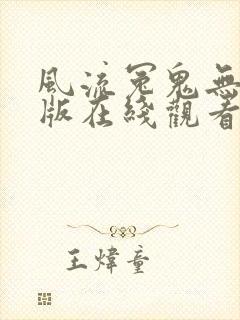 風流冤鬼無
版在綫觀看
王煒童